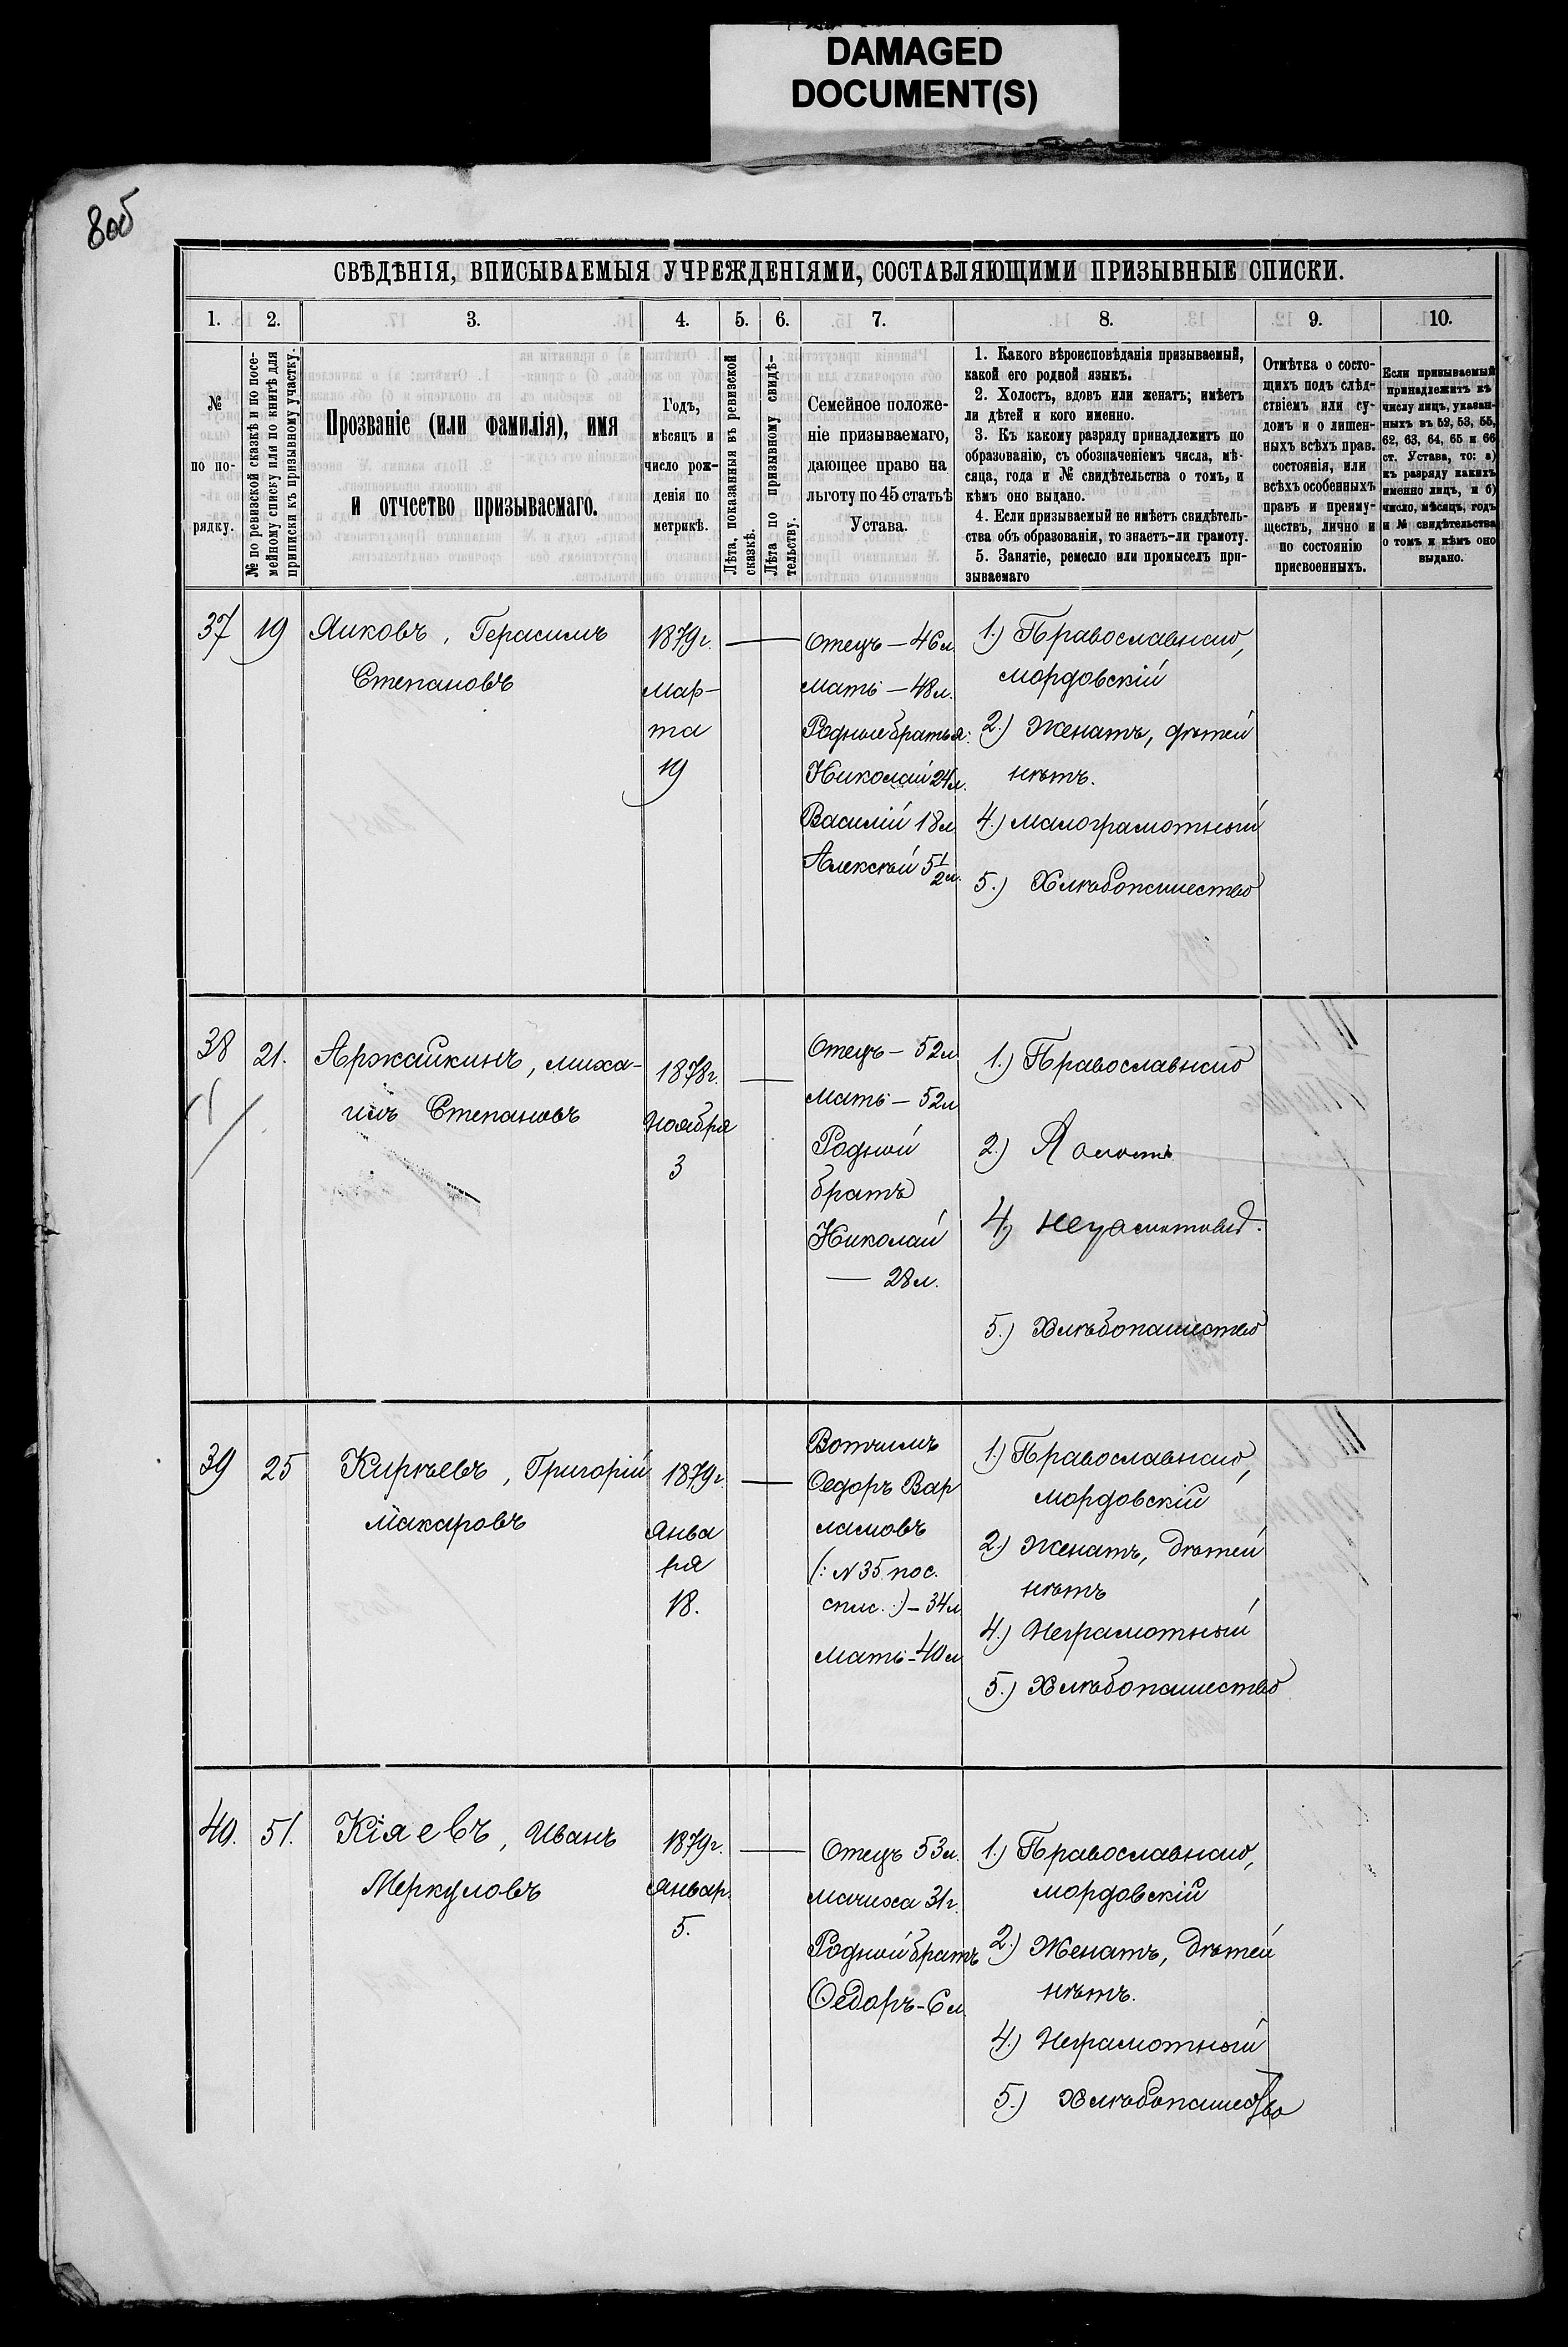 DAMAGED
DOCUMENT(S)
8об
СВѢДѢНІЯ, ВПИСЫВАЕМЫЯ УЧРЕЖДЕНІЯМИ, СОСТАВЛЯЮЩИМИ ПРИЗЫВНЫЕ СПИСКИ.
1. 2. 3. 4. 5. 6. 7. 8. 9. 10.
№
по по-
рядку.
№ по ревизской сказкѣ и по посе-
мейному списку или по книгѣ для
приписки къ призывному участку.
Прозваніе (или фамилія), имя
и отчество призываемаго.
Годъ,
мѣсяцъ и
число рож-
денія по
метрикѣ.
Лѣта, показанныя въ ревизской
сказкѣ.
Лѣта по призывному свидѣ-
тельству.
Семейное положе-
ніе призываемаго,
дающее право на
льготу по 45 статьѣ
Устава.
1. Какого вѣроисповѣданія призываемый,
какой его родной языкъ.
2. Холостъ, вдовъ или женатъ; имѣетъ
ли дѣтей и кого именно.
3. Къ какому разряду принадлежитъ по
образованію, съ обозначеніемъ числа, мѣ-
сяца, года и № свидѣтельства о томъ, и
кѣмъ оно выдано.
4. Если призываемый не имѣетъ свидѣтель-
ства объ образованіи, то знаетъ-ли грамоту.
5. Занятіе, ремесло или промыселъ при-
зываемаго
Отмѣтка о состо-
щихъ подъ слѣд-
ствіемъ или су-
домъ и о лишен-
ныхъ всѣхъ прав.
состоянія, или
всѣхъ особенныхъ
правъ и преиму-
ществъ, лично и
по состоянію
присвоенныхъ.
Если призываемый
принадлежитъ къ
числу лицъ, указан-
ныхъ въ 52, 53, 55,
62, 63, 64, 65 и 66
ст. Устава, то: а)
къ разряду какихъ
именно лицъ, и б)
число, мѣсяцъ, годъ
и № свидѣтельства
о томъ и кѣмъ оно
выдано.
37 19
Яиковъ, Герасимъ
Степановъ
1879г.
Мар-
та
19
Отецъ — 46 л.
Мать — 48 л.
Родные братья:
Николай 24 л.
Василій 18 л.
Алексѣй 5 1/2 л.
1.) Православнаго,
мордовскій
2.) Женатъ, дѣтей
нѣтъ.
4.) Малограмотный
5.) Хлѣбопашество
38 21.
Аржайкинъ, Миха-
илъ Степановъ
1878г.
Ноября
3
Отецъ — 52 л.
Мать — 52 л.
Родной
братъ
Николай
— 28 л.
1.) Православнаго
2.)
4.)
5.) Хлѣбопашество
39 25
Кирѣевъ, Григорій
Макаровъ
1879г.
Янва
ря
18.
Вотчимъ
Ѳедоръ Вар
ламовъ
(: N 35 пос.
спис. :) — 34 л.
Мать — 40 л.
1.) Православнаго,
мордовскій
2.) Женатъ, дѣтей
нѣтъ
4.) Неграмотный
5.) Хлѣбопашество
40. 51.
Кіяевъ, Иванъ
Меркуловъ
1879г.
Январ.
5.
Отецъ 53 л.
Мачиха 31 г.
Родной братъ
Ѳедоръ — 6 л.
1.) Православнаго,
мордовскій
2.) Женатъ, дѣтей
нѣтъ.
4.) Неграмотный
5.) Хлѣбопашество